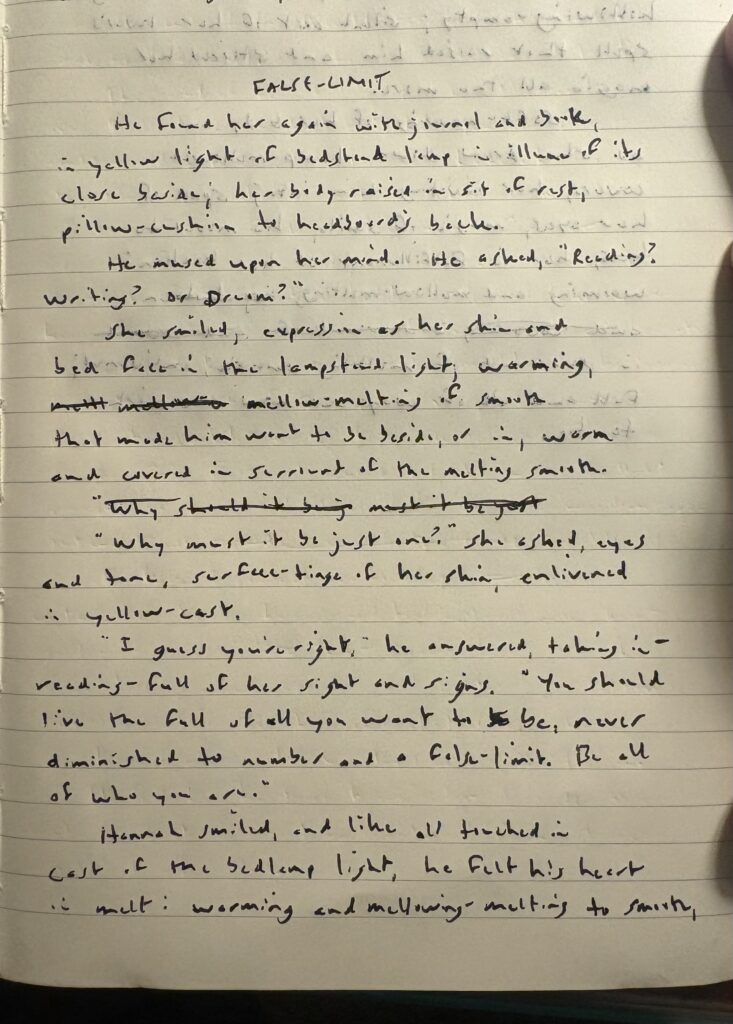 FALSE-LIMIT
He found her again with journal and book,
in yellow light of bedstead lamp in illume of its
close beside; her body raised in sit of rest,
pillow-cushion to headboard's back.
He mused upon her mind. He asked, "Reading?
Writing? Or Dream?"
She smiled, expression as her skin and
bed face in the lampstead light, warming,
mellow-melting of smooth
that made him want to be beside, or in, warm
and covered in surround of the melting smooth.
"Why should it being must it be just
"Why must it be just one?" she asked, eyes
and tone, surface-tinge of her skin, enlivened
in yellow-cast.
"I guess you're right," he answered, taking in-
reading-full of her sight and signs. "You should
live the full of all you want to be, never
diminished to number and a false-limit. Be all
of who you are."
Hannah smiled, and like all touched in
cast of the bedlamp light, he felt his heart
in melt: warming and mellowing-melting to smooth,